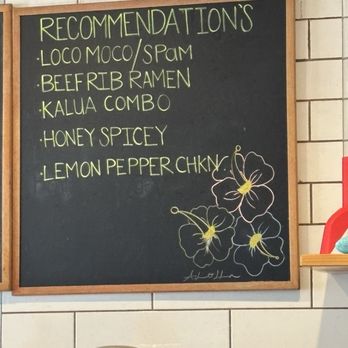 RECOMMENDATION'S
·LOCO MOCO/SPAM
·BEEF RIB RAMEN
·KALUA COMBO
·HONEY SPICEY
·LEMON PEPPER CHKN.